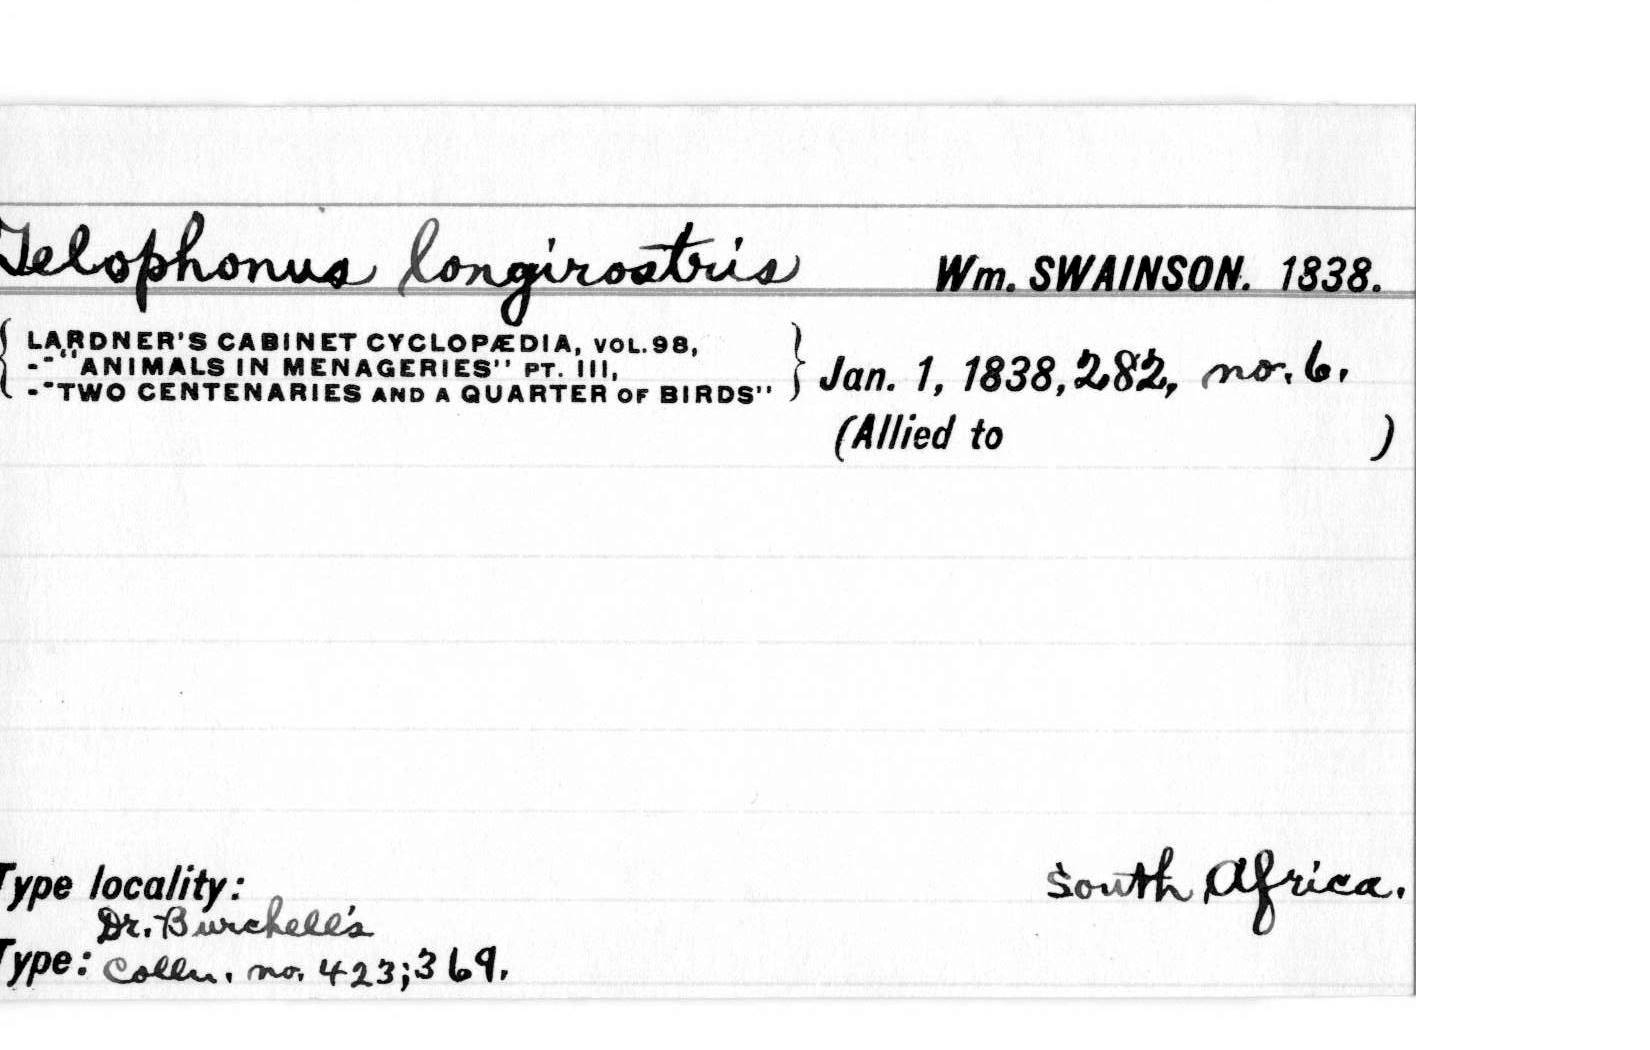 Telophonus longirostris Wm. SWAINSON. 1838.
LARDNER'S CABINET CYCLOPÆDIA, VOL. 98,
-"ANIMALS IN MENAGERIES" PT. III,
-"TWO CENTENARIES AND A QUARTER OF BIRDS"
Jan. 1, 1838, 282, no. 6.
(Allied to )
Type locality: South Africa.
Dr. Burchell's
Type: Colln. no. 423; 369.